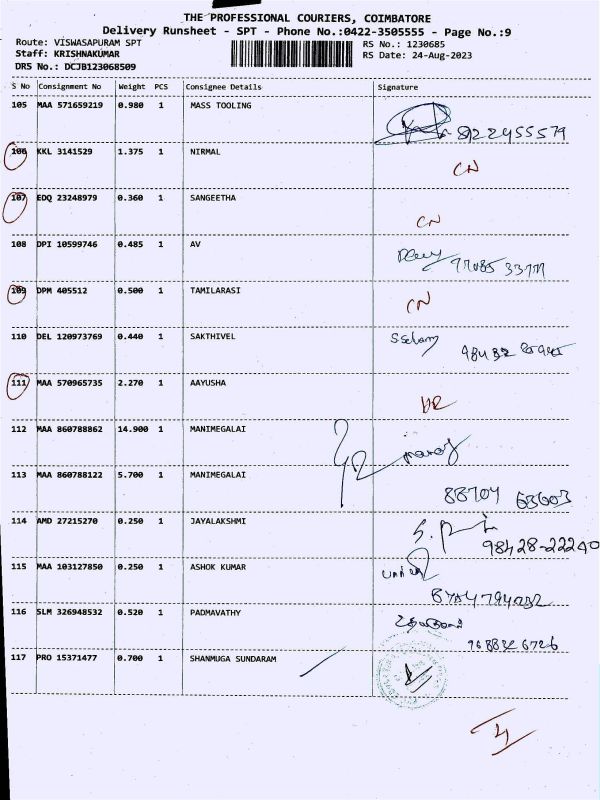 THE PROFESSIONAL COURIERS, COIMBATORE
Delivery Runsheet - SPT - Phone No.:0422-3505555 - Page No.:9
Route: VISWASAPURAM SPT
RS No.: 1230685
Staff: KRISHNAKUMAR
RS Date: 24-Aug-2023
DRS No.: DCJB123068509
S No Consignment No Weight PCS Consignee Details Signature
105 MAA 571659219 0.980 1 MASS TOOLING
8122455579
106 KKL 3141529 1.375 1 NIRMAL
CN
107 EDQ 23248979 0.360 1 SANGEETHA
CN
108 DPI 10599746 0.485 1 AV
109 DPM 405512 0.500 1 TAMILARASI
CN
110 DEL 120973769 0.440 1 SAKTHIVEL
111 MAA 570965735 2.270 1 AAYUSHA
112 MAA 860788862 14.900 1 MANIMEGALAI
113 MAA 860788122 5.700 1 MANIMEGALAI
88704 63603
114 AMD 27215270 0.250 1 JAYALAKSHMI
98428-22240
115 MAA 103127850 0.250 1 ASHOK KUMAR
116 SLM 326948532 0.520 1 PADMAVATHY
117 PRO 15371477 0.700 1 SHANMUGA SUNDARAM